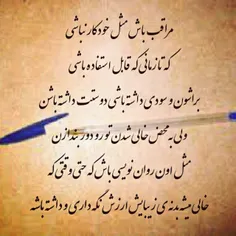 مراقب باش مثل خودکار نباشی
که تا زمانی که قابل استفاده باشی
براشون و سودی داشته باشی دوستت داشته باشن
ولی به محض خالی شدن تو رو دور بندازن
مثل اون روان نویسی باش که حتی وقتی که
خالی میشه بدنه ی زیبایش ارزش نگه داری و داشته باشه